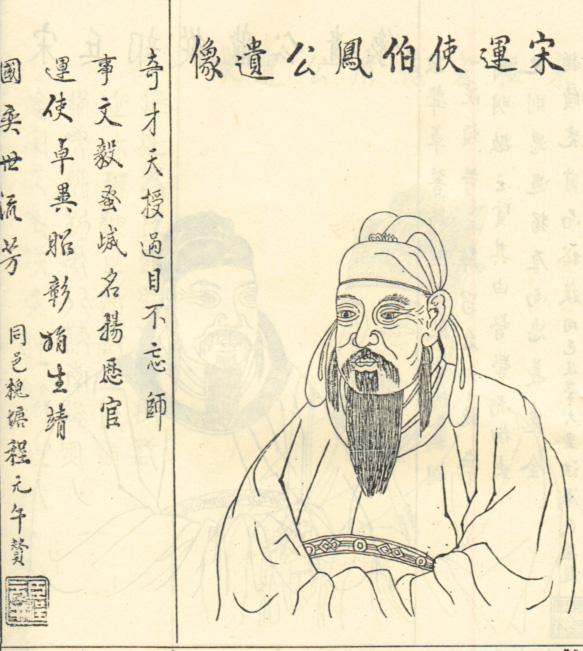 宋運使伯鳳公遺像
奇才天授過目不忘師
事文毅蚤歲名揚歷官
運使卓異昭彰捐生靖
國奕世流芳
同邑槐塘程元午贊